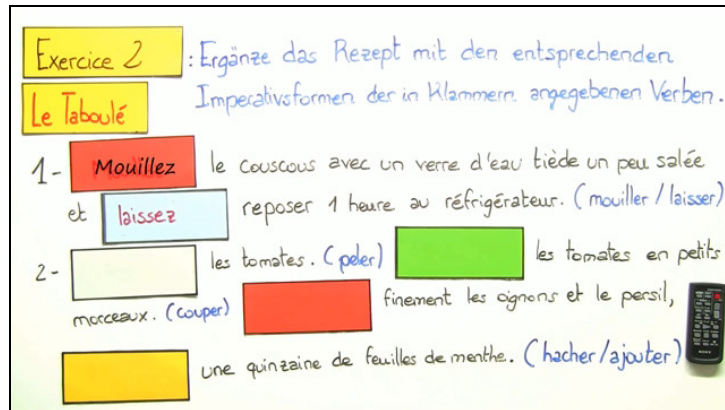 Exercice 2 : Ergänze das Rezept mit den entsprechenden
Le Taboulé Imperativsformen der in Klammern angegebenen Verben.
1- Mouillez le couscous avec un verre d'eau tiède un peu salée
et laissez reposer 1 heure au réfrigérateur. (mouiller / laisser)
2- les tomates. (peler) les tomates en petits
morceaux. (couper) finement les oignons et le persil,
une quinzaine de feuilles de menthe. (hacher / ajouter)
SONY